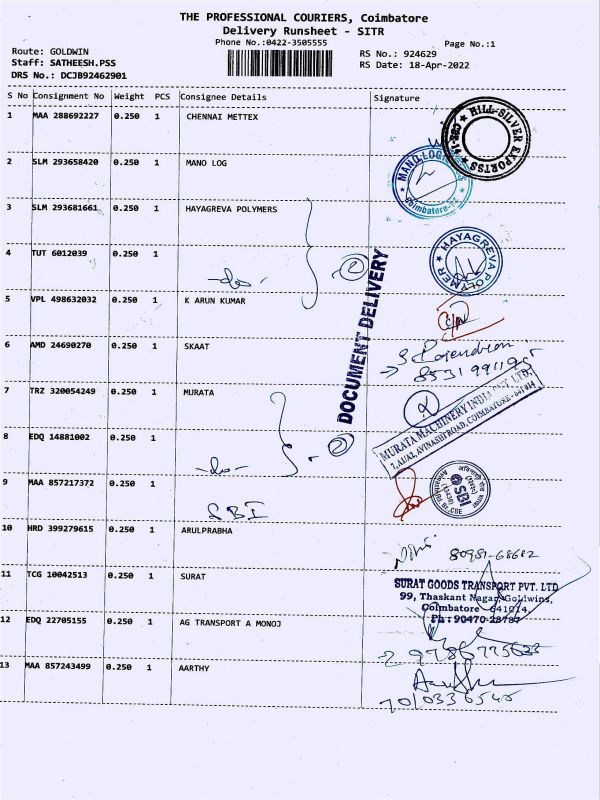 THE PROFESSIONAL COURIERS, Coimbatore
Delivery Runsheet - SITR
Phone No.:0422-3505555
Page No.:1
Route: GOLDWIN
RS No.: 924629
Staff: SATHEESH.PSS
RS Date: 18-Apr-2022
DRS No.: DCJB92462901
S No Consignment No Weight PCS Consignee Details Signature
1 MAA 288692227 0.250 1 CHENNAI METTEX
HILL-SILVER EXPORTSS
2 SLM 293658420 0.250 1 MANO LOG
MANO LOG
Coimbatore
3 SLM 293681661 0.250 1 HAYAGREVA POLYMERS
HAYAGREVA POLYMER
4 TUT 6012039 0.250 1
-do- 2
DOCUMENT DELIVERY
5 VPL 498632032 0.250 1 K ARUN KUMAR
6 AMD 24690270 0.250 1 SKAAT
7 TRZ 320054249 0.250 1 MURATA
2
MURATA MACHINERY INDIA PVT. LTD.
AVINASHI ROAD, COIMBATORE - 641 014
8 EDQ 14881002 0.250 1
-do- 2
9 MAA 857217372 0.250 1
SBI
SBI
10 HRD 399279615 0.250 1 ARULPRABHA
80981-68682
11 TCG 10042513 0.250 1 SURAT
SURAT GOODS TRANSPORT PVT. LTD
99, Thaskant Nagar, Goldwins,
Coimbatore 641014
Ph : 90470-28787
12 EDQ 22705155 0.250 1 AG TRANSPORT A MONOJ
13 MAA 857243499 0.250 1 AARTHY